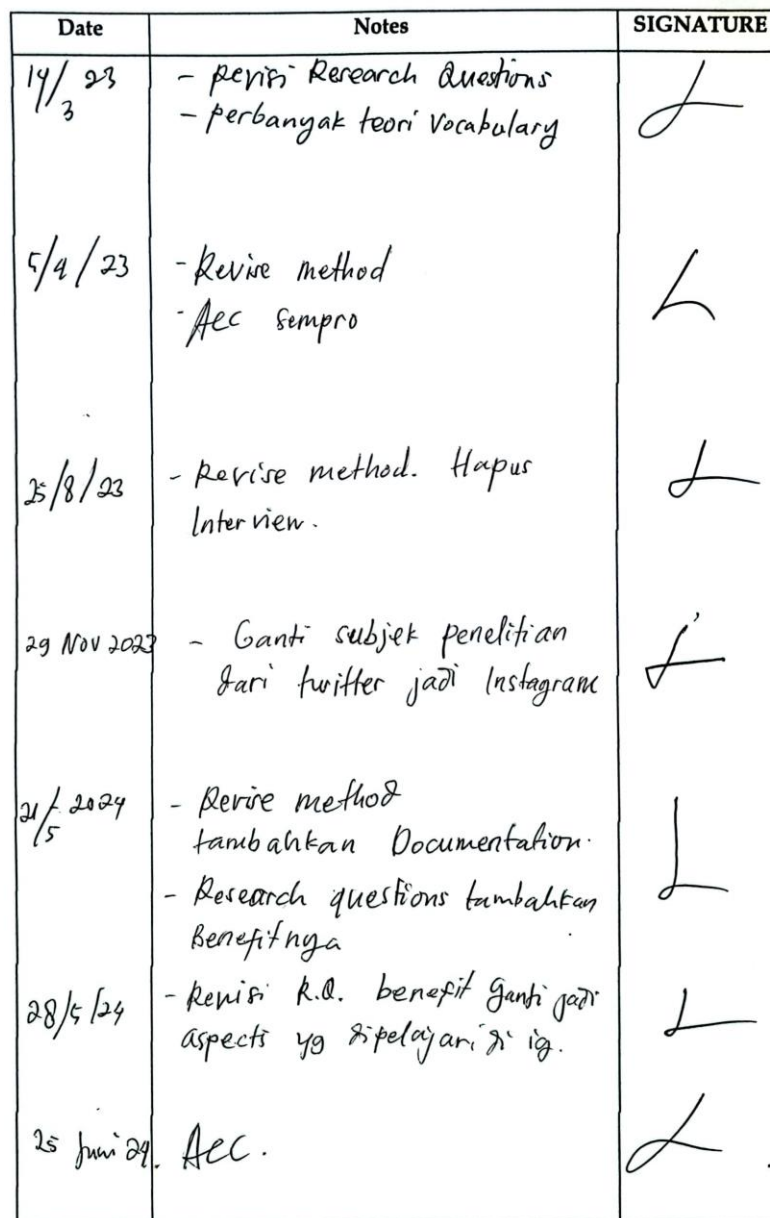 Date Notes SIGNATURE
14/3 23 - Revisi Research Questions
- perbanyak teori Vocabulary
5/4/23 - Revise method
- Acc sempro
25/8/23 - Revise method. Hapus
Interview.
29 Nov 2023 - Ganti subjek penelitian
dari twitter jadi Instagram
21/5 2024 - Revise method
tambahkan Documentation.
- Research questions tambahkan
Benefitnya
28/5/24 - Revisi R.Q. benefit ganti jadi
aspects yg dipelajari di ig.
25 Juni 24. Acc.